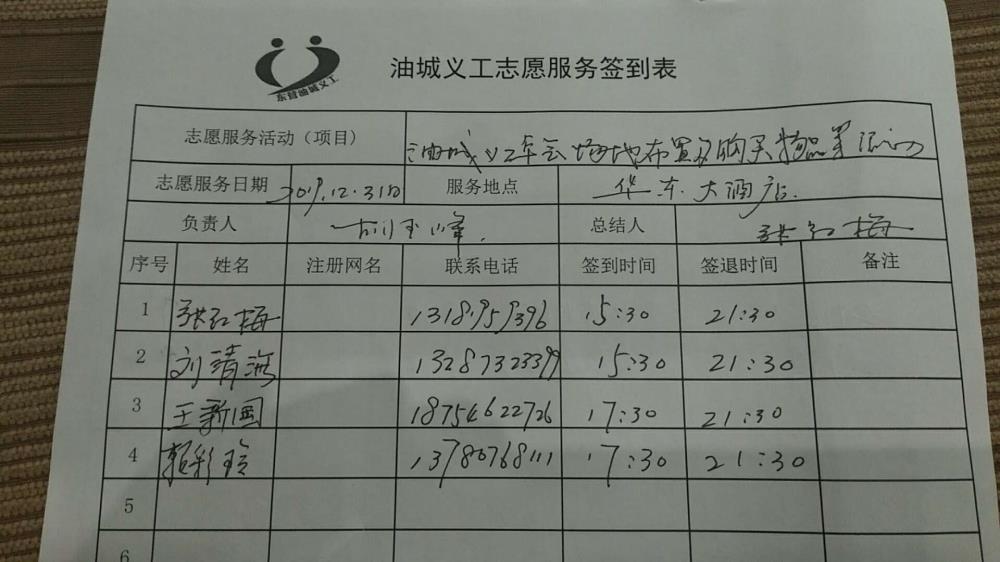 东营油城义工
油城义工志愿服务签到表
志愿服务活动（项目） 油城义工年会场地布置及购买物品等
志愿服务日期 2019.12.31日 服务地点 华东大酒店.
负责人 胡玉峰. 总结人 张红梅
序号 姓名 注册网名 联系电话 签到时间 签退时间 备注
1 张红梅 15:30 21:30
2 刘靖 13287323399 15:30 21:30
3 王新国 18754622726 17:30 21:30
4 彩玲 13780768111 17:30 21:30
5
6